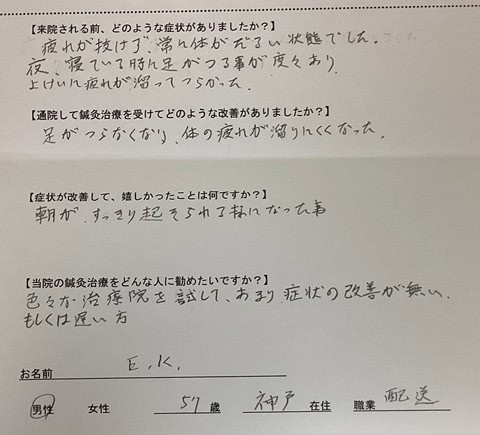 【来院される前、どのような症状がありましたか？】
疲れが抜けず、常に体がだるい状態でした。
夜、寝ている時に足がつる事が度々あり
よけいに疲れが溜ってつらかった。
【通院して鍼灸治療を受けてどのような改善がありましたか？】
足がつらなくなり、体の疲れが溜りにくくなった。
【症状が改善して、嬉しかったことは何ですか？】
朝が、すっきり起きられる様になった事
【当院の鍼灸治療をどんな人に勧めたいですか？】
色々な治療院を試して、あまり症状の改善が無い、
もしくは遅い方
お名前 E.K.
男性 女性 57 歳 神戸 在住 職業 配送